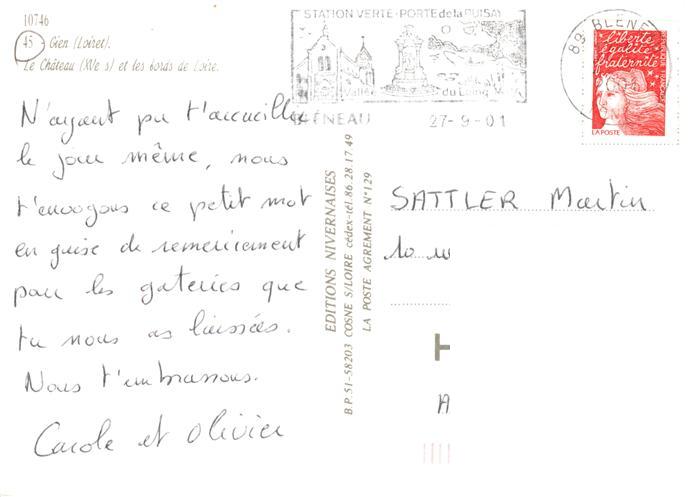 10746
45 - Gien (Loiret).
Le Château (XVe s) et les bords de Loire.
N'ayant pu t'accueillir
le jour même, nous
t'envoyons ce petit mot
en guise de remerciement
pour les gateries que
tu nous as laissées.
Nous t'embrassons.
Carole et Olivier
EDITIONS NIVERNAISES
B.P. 51-58203 COSNE S/LOIRE cédex-tél.86.28.17.49
LA POSTE AGREMENT N°129
STATION VERTE-PORTE de la PUISAYE
Vallée du Loing
BLENEAU 27-9-01
89 BLENEAU
liberté
égalité
fraternité
LA POSTE
SATTLER Martin
10
A